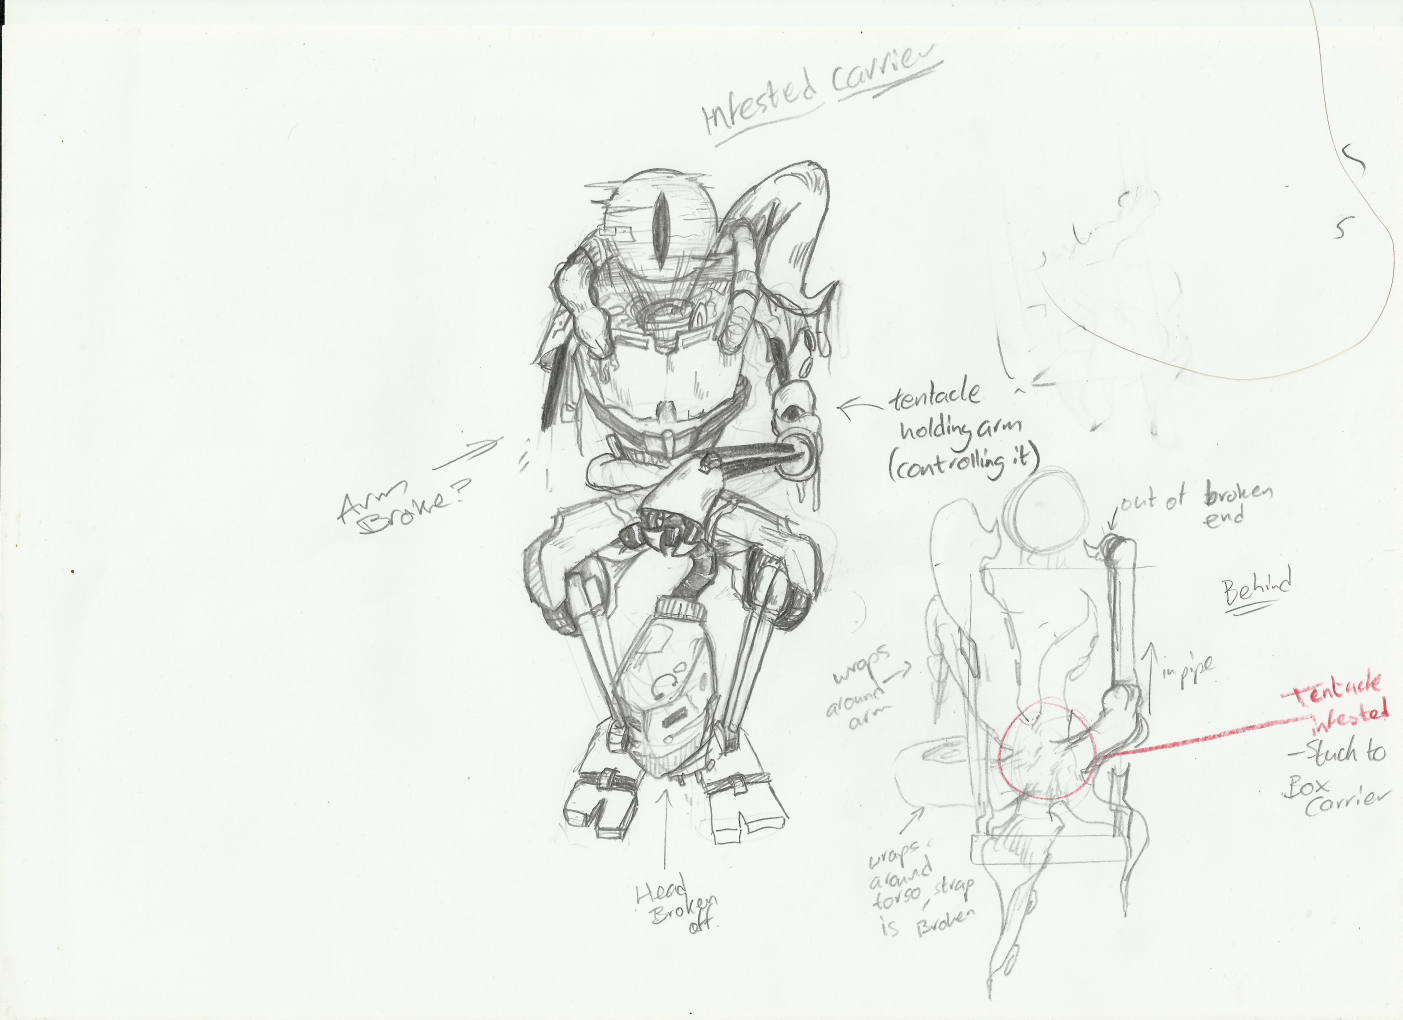 Infested Carrier
tentacle
holding arm
(controlling it)
Arm
Broke?
out of broken
end
Behind
in pipe
wraps
around
arm
Tentacle
infested
- Stuck to
Box
Carrier
wraps
around
torso, strap
is Broken
Head
Broken
off.